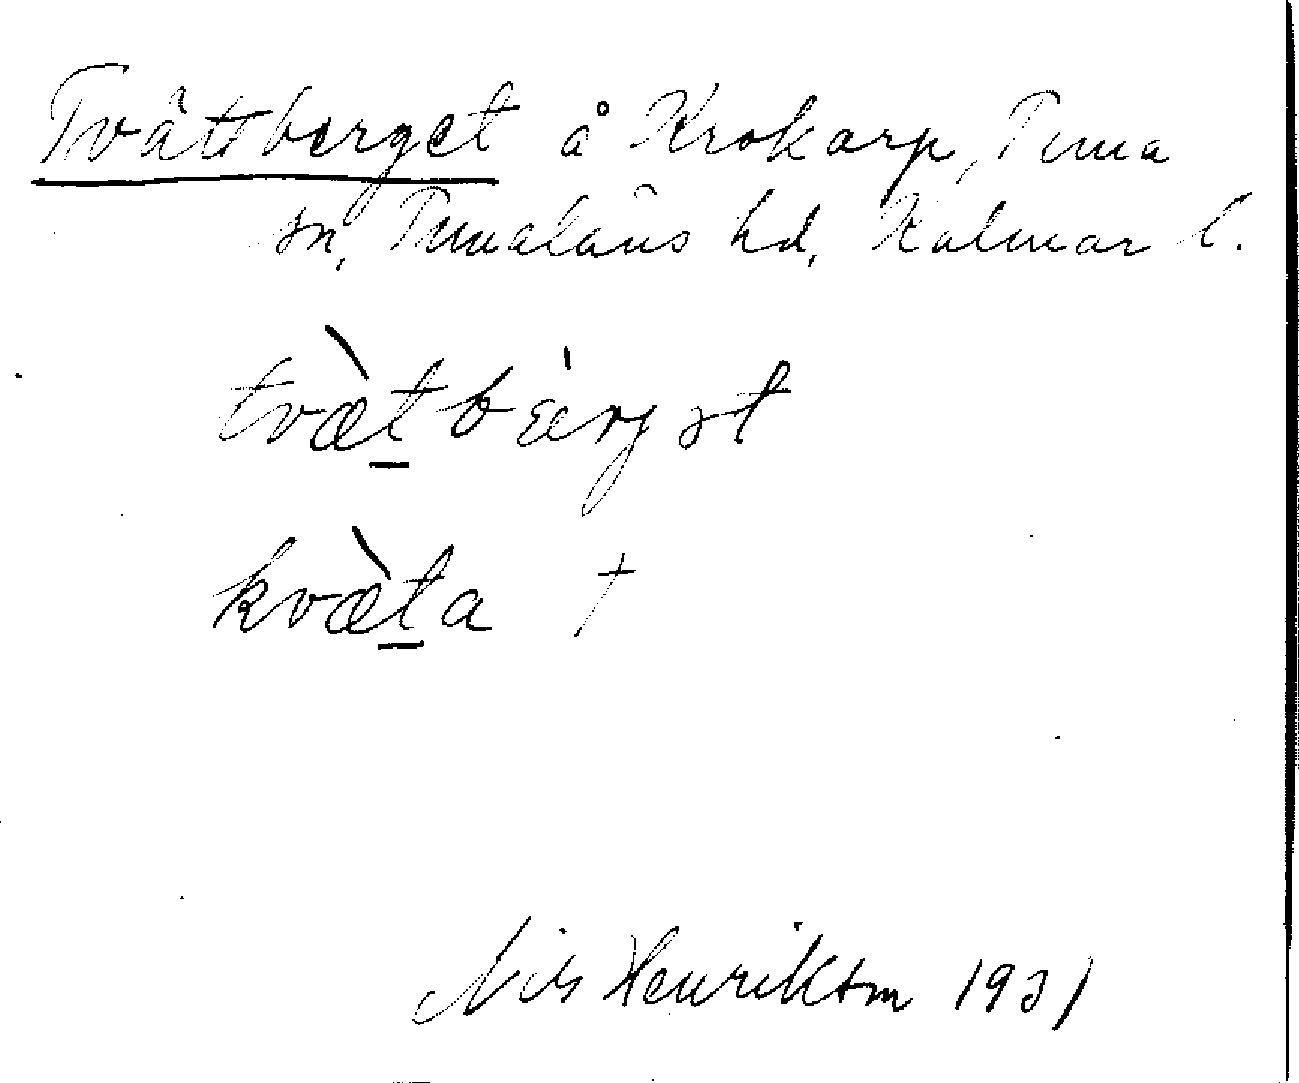 Tvättberget å Krokarp, Tuna
sn, Tunaläns hd, Kalmar l.
tvæ̀tbæ̀rjət
kvæ̀ta †
Nils Henrikson 1931